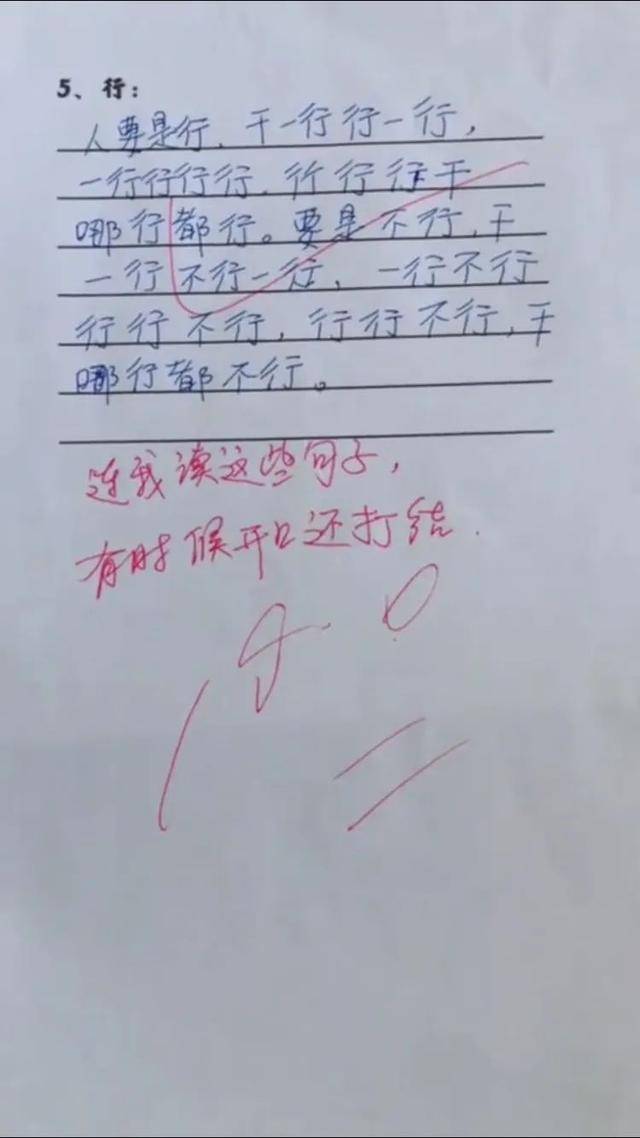 5、行：
人要是行、干一行行一行，
一行行行行、行行行干
哪行都行。要是不行,干
一行不行一行、一行不行
行行不行，行行不行,干
哪行都不行。
连我读这些句子，
有时候开口还打结.